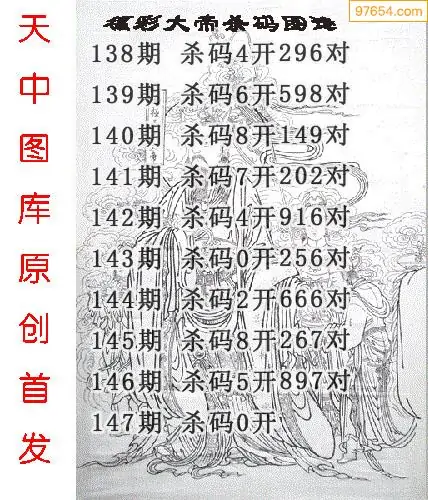 97654.com
福彩大帝杀码图谜
天中图库原创首发
138期 杀码4开296对
139期 杀码6开598对
140期 杀码8开149对
141期 杀码7开202对
142期 杀码4开916对
143期 杀码0开256对
144期 杀码2开666对
145期 杀码8开267对
146期 杀码5开897对
147期 杀码0开